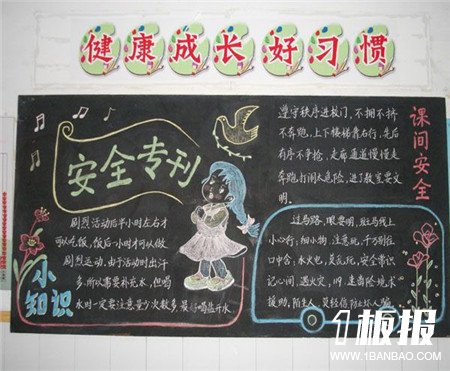 健康成长好习惯
安全专刊
小知识
剧烈活动后半小时左右才
可以吃饭,饭后一小时才可以做
剧烈运动,由于活动时出汗
多,所以需要补充水,但喝
水时一定要注意量少次数多,最好喝盐开水
课间安全
遵守秩序进校门,不拥不挤
不奔跑,上下楼梯靠右行,先后
有序不争抢,走廊通道慢慢走
奔跑打闹太危险,进入教室要文
明。
过马路,眼要明,斑马线上
小心行,细小物,注意玩,千万别往
口中含,水火电,莫乱玩,安全常识
记心间,遇火灾,
援助,陌生人,莫轻信防止坏人骗
1板报
WWW.1BANBAO.COM